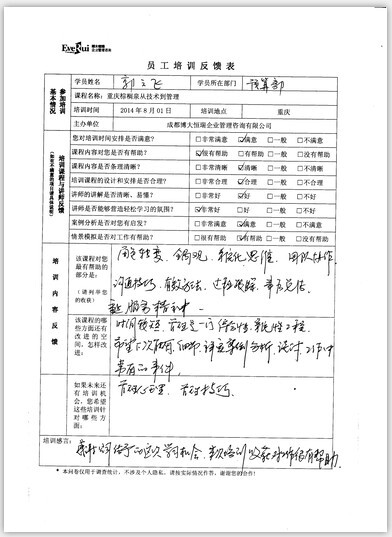 EveRui 博大恒瑞
员工培训反馈表
参加培训基本情况
学员姓名 郭立飞 学员所在部门 预算部
课程名称：重庆棕榈泉从技术到管理
培训时间 2014年8月01日 培训地点 重庆
主办单位 成都博大恒瑞企业管理咨询有限公司
培训课程与讲师反馈
您对培训时间安排是否满意？ □非常满意 ☑满意 □一般 □不满意
课程内容对您是否有帮助？ ☑很有帮助 □有帮助 □一般 □没有帮助
课程内容是否条理清晰？ □非常清晰 ☑清晰 □一般 □不清晰
培训课程的设计和安排是否合理？ □非常合理 ☑合理 □一般 □不合理
讲师的讲解是否清晰、易懂？ □非常好 ☑好 □一般 □不好
讲师是否能够营造轻松学习的氛围？ ☑非常好 □好 □一般 □不好
案例分析是否对您有启发？ □非常满意 ☑满意 □一般 □不满意
情景模拟是否对工作有帮助？ □很有帮助 ☑有帮助 □一般 □没有帮助
培训内容反馈
该课程对您最有帮助的部分是：
（请列举您的收获）
角色转变、 系统化思维、 团队协作、
沟通技巧、有效方法、过程跟踪、事后总结
该课程的哪些方面还有改进的空间，怎样改进：
时间较短，管理是一门综合性、系统性工程
希望下次能有
如果未来还有培训机会，您希望这些培训针对哪些方面：
管理心理、管理技巧
培训感言：
感谢公司给予的这次学习机会，本次培训收获对工作很有帮助。
* 本问卷仅用于调查统计，不涉及个人隐私，请按实际情况作答，谢谢您的合作！